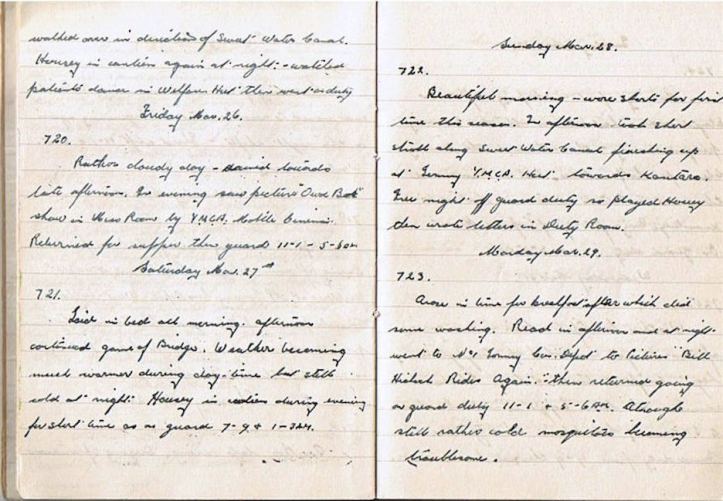 walked over in direction of Sweet Water Canal.
Housey in canteen again at night - watched
patients dance in Welfare Hut then went on duty
Friday Mar. 26.
720.
Rather cloudy day - rained towards
late afternoon. In evening saw picture "Our
show in Mess Room by Y.M.C.A. Mobile Cinema.
Returned for supper then guard 11-1 - 5-6 am
Saturday Mar. 27th
721.
Laid in bed all morning. afternoon
continued game of Bridge. Weather becoming
much warmer during day-time but still
cold at night. Housey in canteen during evening
for short time as on guard 7-9 & 1-3 am.
Sunday Mar. 28.
722.
Beautiful morning - wore shorts for first
time this season. In afternoon took short
stroll along Sweet Water Canal finishing up
at Y.M.C.A. Hut towards Kantara.
Free night off guard duty so played Housey
then wrote letters in Duty Room.
Monday Mar. 29.
723.
Arose in time for breakfast after which did
some washing. Read in afternoon and at night
went to No 1 Con. Depot to Pictures "Bill
Rides Again." then returned going
on guard duty 11-1 & 5-6 am. Although
still rather cold mosquitoes becoming
troublesome.